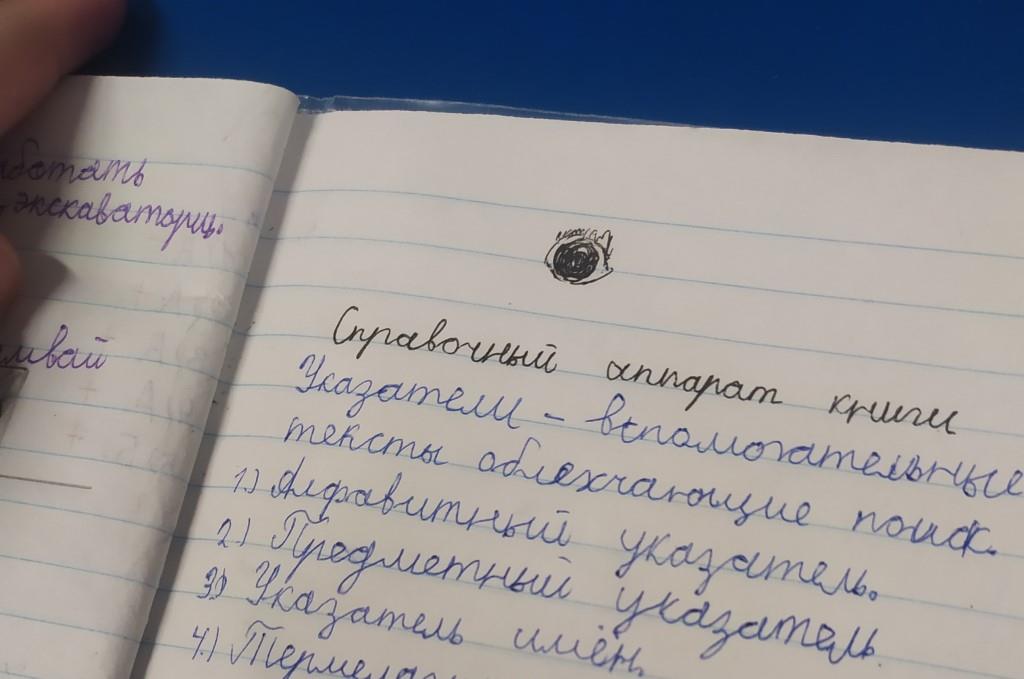 экскаваторщ.
Справочный аппарат книги
Указатели - вспомогательные
тексты облехчающие поиск.
1.) Алфавитный указатель.
2.) Предметный указатель.
3.) Указатель имён.
4.)